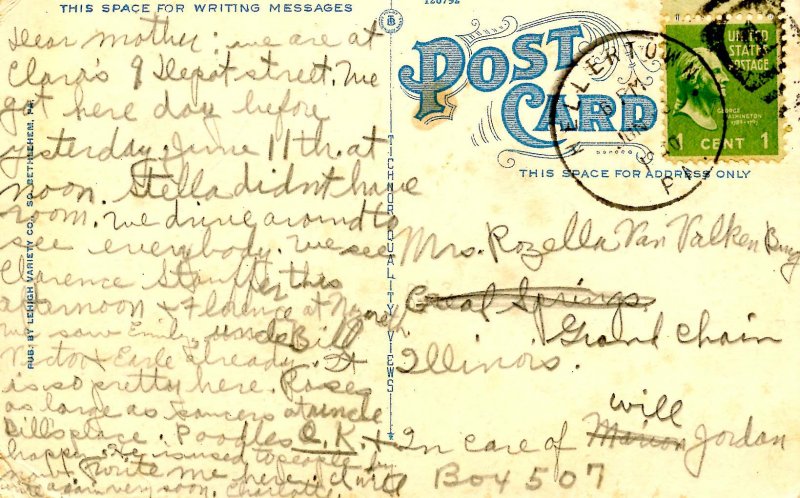 THIS SPACE FOR WRITING MESSAGES
Dear mother: we are at
Clara's 9 Depot street. We
got here day before
yesterday. June 11th. at
noon. Stella didnt have
room. We drive around to
see everybody. We see
Clarence Stauffer this
afternoon & Florence at
we saw Emily, uncle Bill
Victor & Earle already. It
is so pretty here. Roses
as large as saucers at uncle
Bill's place. Poodles O.K. &
happy. He is used to people by
write me here. I will
write again very soon. Charlotte.
PUB. BY LEHIGH VARIETY CO., SO. BETHLEHEM, PA.
CHNOR QUALITY VIEWS
120792
POST
CARD
THIS SPACE FOR ADDRESS ONLY
HELLERTOWN
PM
JUN
PA.
UNITED
STATES
POSTAGE
GEORGE
WASHINGTON
1789-1797
1 CENT 1
Mrs. Rozella Van Valken Burg
Coal Springs
Grand Chain
Illinois.
will
In care of Marion Jordan
Box 507